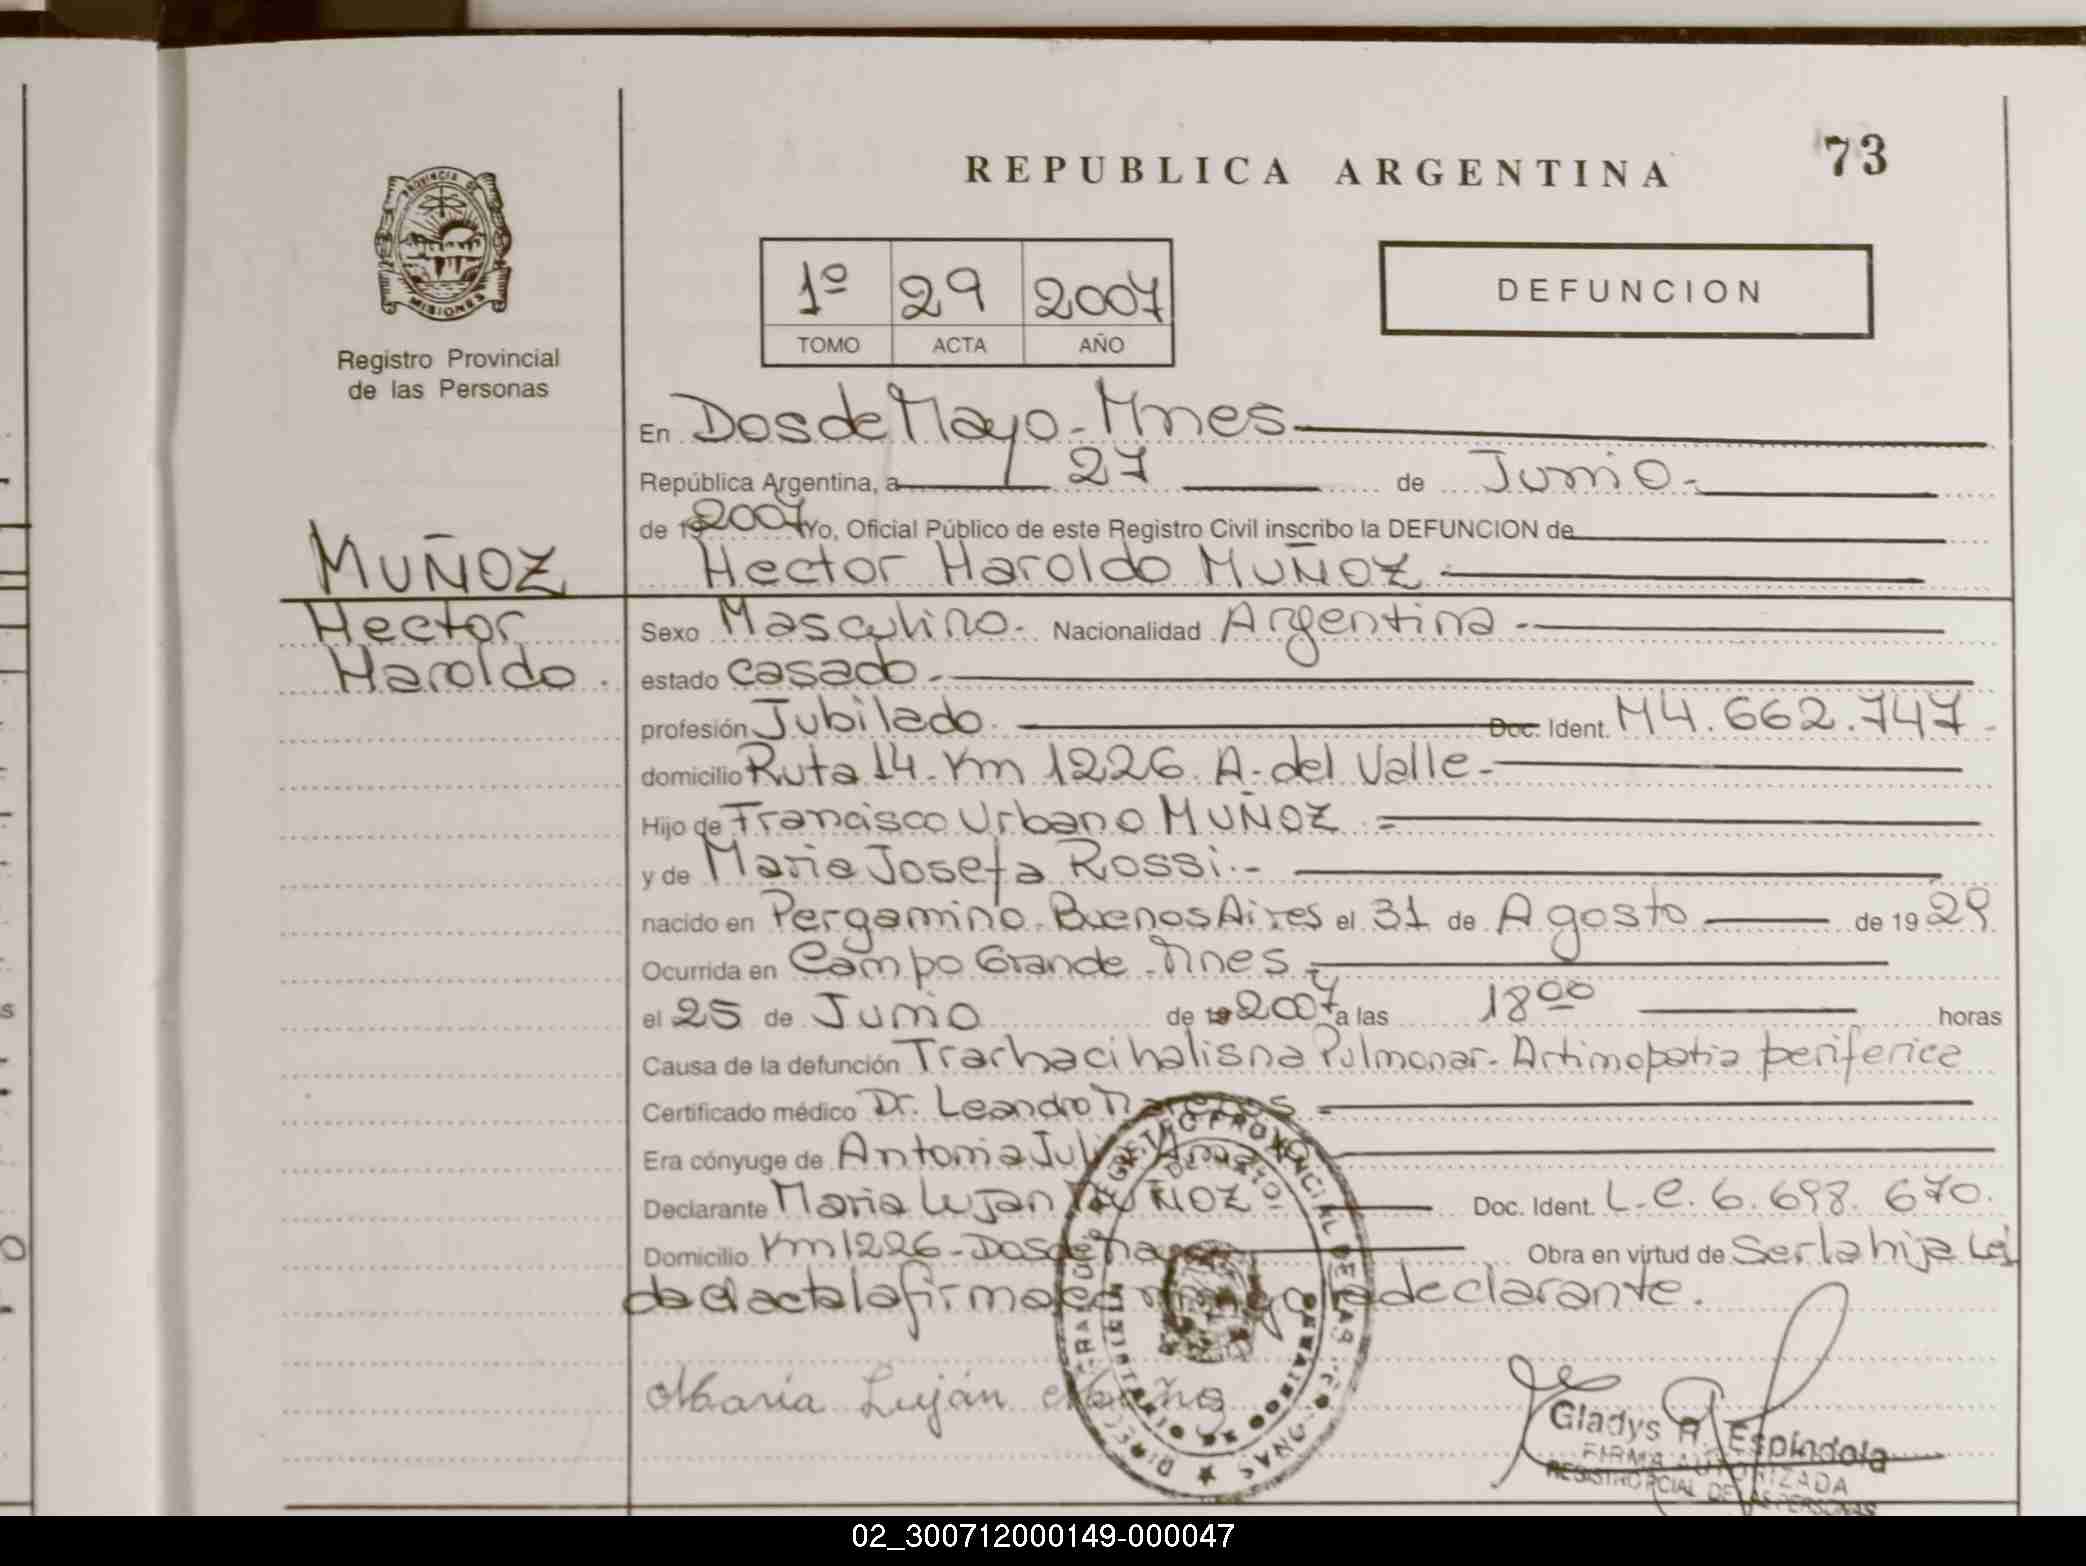 REPUBLICA ARGENTINA
73
PROVINCIA DE
MISIONES
Registro Provincial
de las Personas
1º 29 2007
TOMO ACTA AÑO
DEFUNCION
En Dos de Mayo - Mnes
República Argentina, a 27 de Junio.-
de 19 2007 Yo, Oficial Público de este Registro Civil inscribo la DEFUNCION de
MUÑOZ
Hector Haroldo MUÑOZ
Hector
Haroldo.
Sexo Masculino. Nacionalidad Argentina.-
estado casado.-
profesión Jubilado. Doc. Ident. M4.662.747-
domicilio Ruta 14-Km 1226. A. del Valle-
Hijo de Francisco Urbano MUÑOZ
y de Maria Josefa Rossi.-
nacido en Pergamino. Buenos Aires el 31 de Agosto de 1929
Ocurrida en Campo Grande. Mnes.
el 25 de Junio de 19 2007 a las 18 00 horas
Causa de la defunción Pulmonar. periferica
Certificado médico Dr. Leandro
Era cónyuge de Antonia
Declarante Maria Lujan MUÑOZ Doc. Ident. L.C. 6.698.670.
Domicilio Km 1226-Dos de Obra en virtud de Ser la hija Leí
da el acta la firma declarante.
María Luján
REGISTRO PROVINCIAL DE LAS PERSONAS
Gladys R. Espindola
FIRMA AUTORIZADA
REGISTRO PCIAL DE LAS PERSONAS
02_300712000149-000047